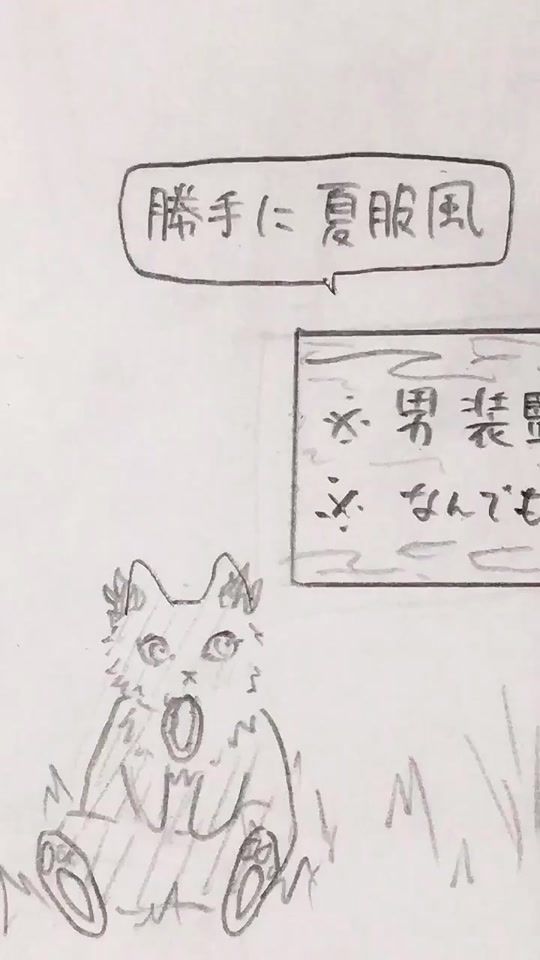 勝手に 夏服風
※ 男装
※ なんでも